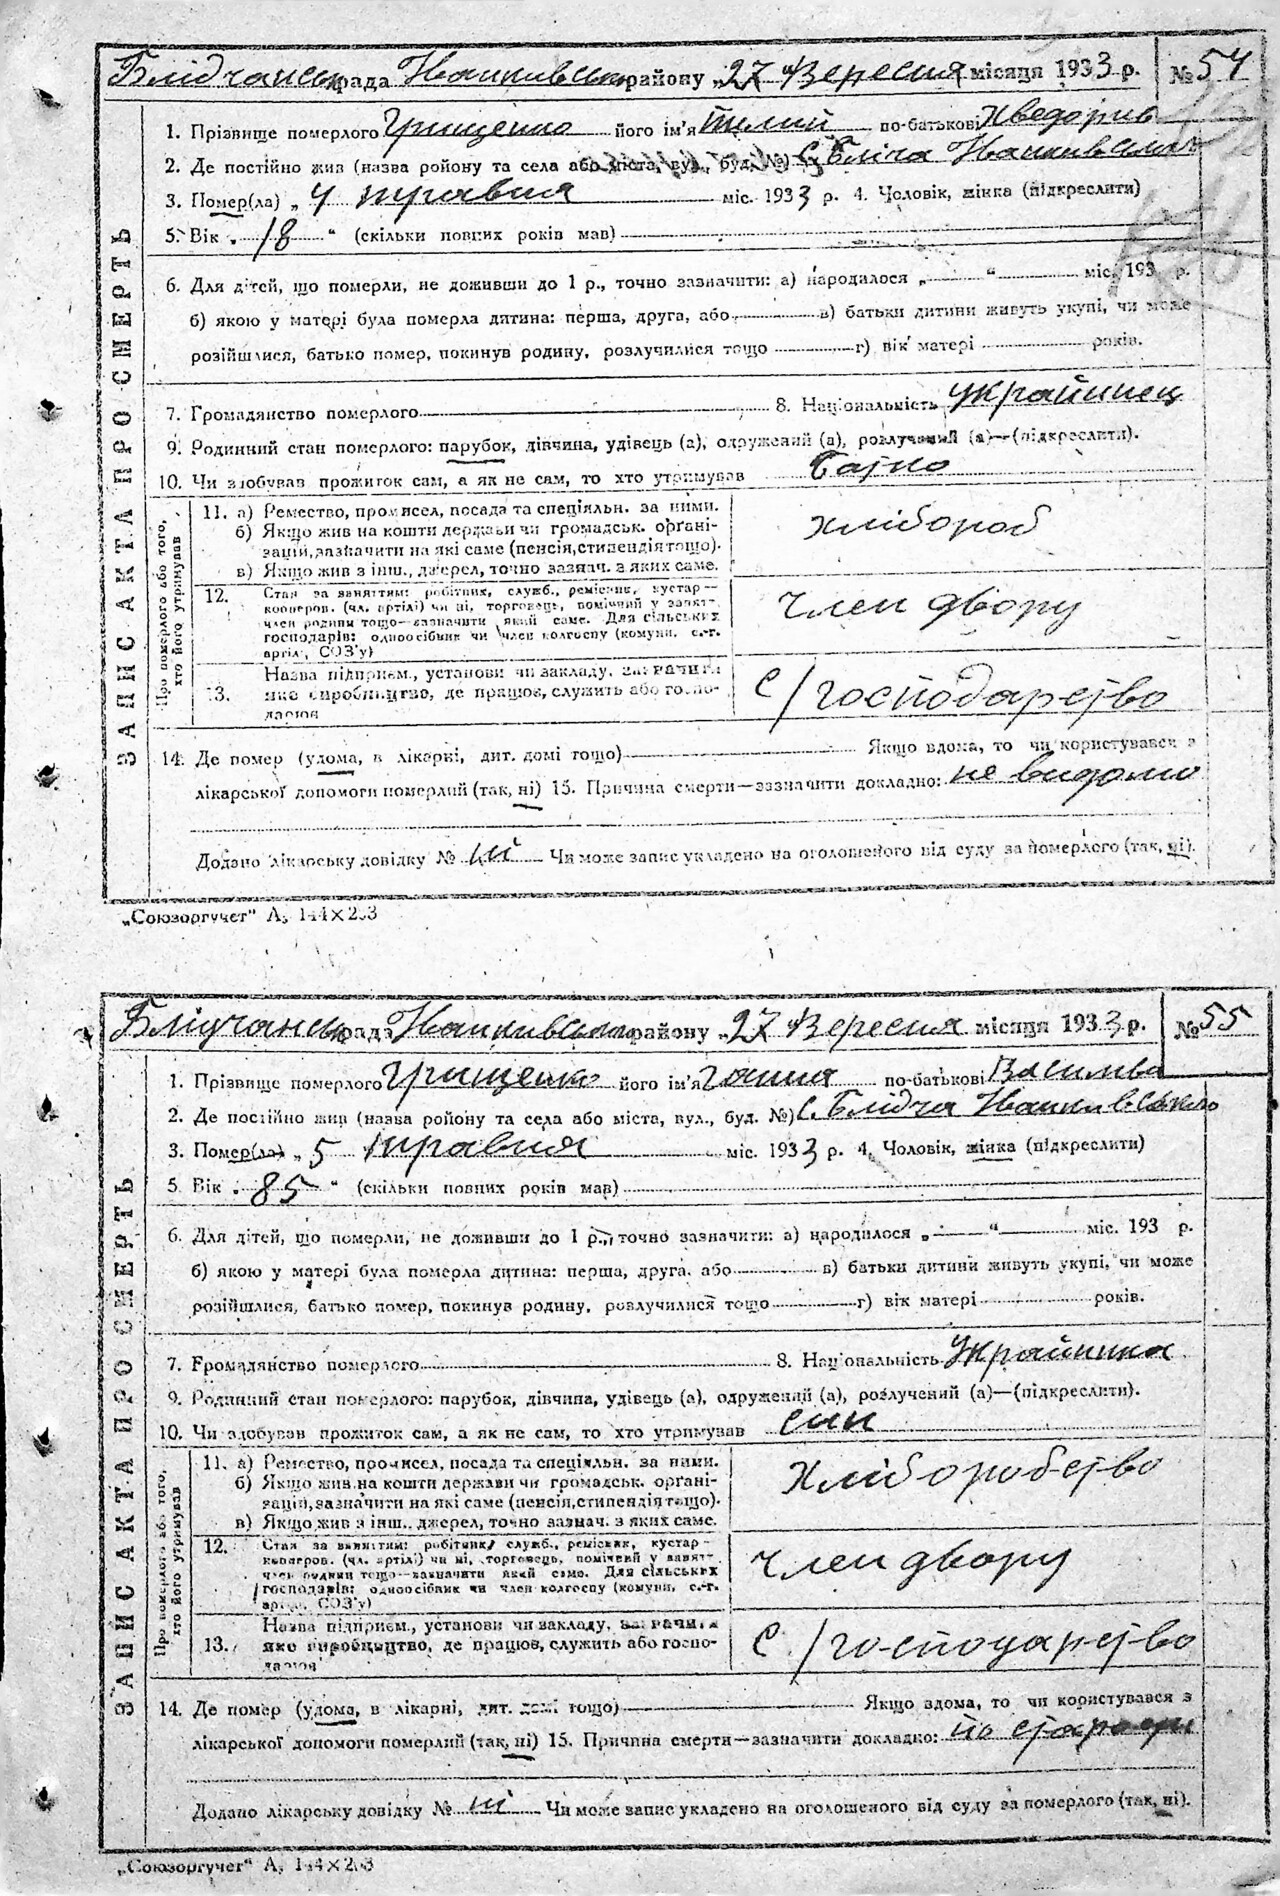 Блідчанськ рада Іванківського району „27 Вересня місяця 1933 р. № 54
ЗАПИС АКТА ПРО СМЕРТЬ
1. Прізвище померлого Грищенко його ім'я по-батькові Хведорів
2. Де постійно жив (назва ройону та села або міста, вул., буд. №) с. Бліча Іванківськ
3. Помер(ла) „ 4 травня міс. 1933 р. 4. Чоловік, жінка (підкреслити)
5. Вік „ 18 " (скільки повних років мав)
6. Для дітей, що померли, не доживши до 1 р., точно зазначити: а) народилося „ " міс. 193 р.
б) якою у матері була померла дитина: перша, друга, або в) батьки дитини живуть укупі, чи може
розійшлися, батько помер, покинув родину, розлучилися тощо г) вік матері років.
7. Громадянство померлого 8. Національність Украйинец
9. Родинний стан померлого: парубок, дівчина, удівець (а), одружений (а), розлучений (а)—(підкреслити).
10. Чи здобував прожиток сам, а як не сам, то хто утримував батко
Про померлого або того, хто його утримував
11. а) Ремество, промисел, посада та спеціяльн. за ними.
б) Якщо жив на кошти держави чи громадськ. органі-
зацій, зазначити на які саме (пенсія, стипендія тощо).
в) Якщо жив з інш., джерел, точно зазнач. з яких саме.
хлібороб
12. Стан за заняттям: робітник, служб., ремісник, кустар—
кооперов. (чл. артілі) чи ні, торговець, помічний у занят.
член родини тощо—зазначити який саме. Для сільських
господарів: одноосібник чи член колгоспу (комуни, с.-г.
артіл., СОЗ'у)
Член двору
13. Назва підприєм., установи чи закладу, зазначити
яке виробництво, де працює, служить або госпо-
дарює
С/господарство
14. Де помер (удома, в лікарні, дит. домі тощо) Якщо вдома, то чи користувався з
лікарської допомоги померлий (так, ні) 15. Причина смерти—зазначити докладно: не видомо
Додано лікарську довідку № ні Чи може запис укладено на оголошеного від суду за померлого (так, ні).
„Союзоргучет" А, 144×203
Блідчанськ рада Іванківського району „27 Вересня місяця 1933 р. № 55
ЗАПИС АКТА ПРО СМЕРТЬ
1. Прізвище померлого Грищенко його ім'я Ганна по-батькові Василіва
2. Де постійно жив (назва ройону та села або міста, вул., буд. №) с. Блідча Іванківсько
3. Помер(ла) „ 5 травня міс. 1933 р. 4. Чоловік, жінка (підкреслити)
5. Вік „ 85 " (скільки повних років мав)
6. Для дітей, що померли, не доживши до 1 р., точно зазначити: а) народилося „ " міс. 193 р.
б) якою у матері була померла дитина: перша, друга, або в) батьки дитини живуть укупі, чи може
розійшлися, батько помер, покинув родину, розлучилися тощо г) вік матері років.
7. Громадянство померлого 8. Національність Украйинка
9. Родинний стан померлого: парубок, дівчина, удівець (а), одружений (а), розлучений (а)—(підкреслити).
10. Чи здобував прожиток сам, а як не сам, то хто утримував син
Про померлого або того, хто його утримував
11. а) Ремество, промисел, посада та спеціяльн. за ними.
б) Якщо жив на кошти держави чи громадськ. органі-
зацій, зазначити на які саме (пенсія, стипендія тощо).
в) Якщо жив з інш., джерел, точно зазнач. з яких саме.
Хліборобство
12. Стан за заняттям: робітник, служб., ремісник, кустар—
кооперов. (чл. артілі) чи ні, торговець, помічний у занят.
член родини тощо—зазначити який саме. Для сільських
господарів: одноосібник чи член колгоспу (комуни, с.-г.
артіл., СОЗ'у)
Член двору
13. Назва підприєм., установи чи закладу, зазначити
яке виробництво, де працює, служить або госпо-
дарює
С/господарство
14. Де помер (удома, в лікарні, дит. домі тощо) Якщо вдома, то чи користувався з
лікарської допомоги померлий (так, ні) 15. Причина смерти—зазначити докладно: по старости
Додано лікарську довідку № ні Чи може запис укладено на оголошеного від суду за померлого (так, ні).
„Союзоргучет" А, 144×203